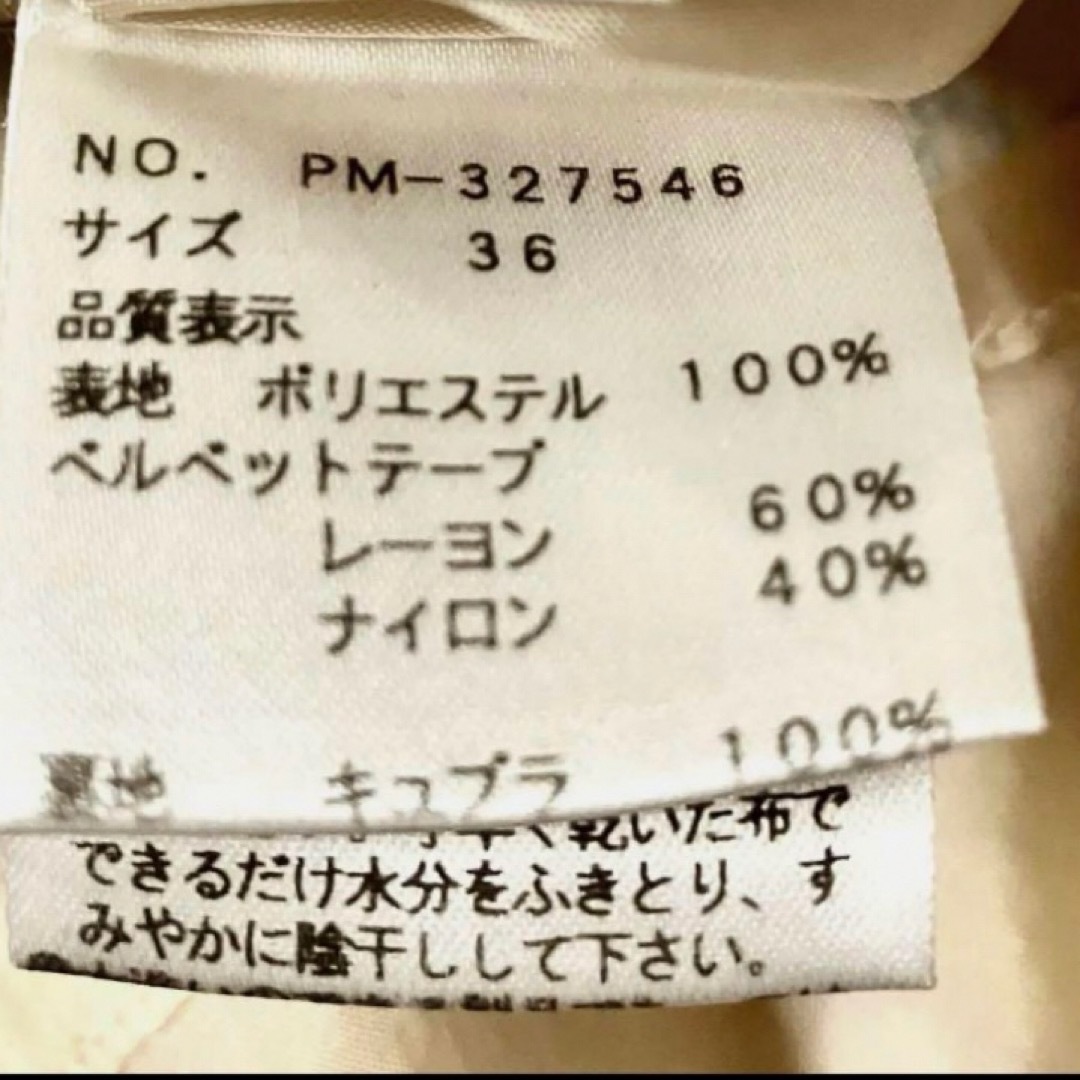 NO. PM-327546
サイズ 36
品質表示
表地 ポリエステル 100%
ベルベットテープ
レーヨン 60%
ナイロン 40%
裏地 キュプラ 100%
早く乾いた布で
できるだけ水分をふきとり、す
みやかに陰干しして下さい。